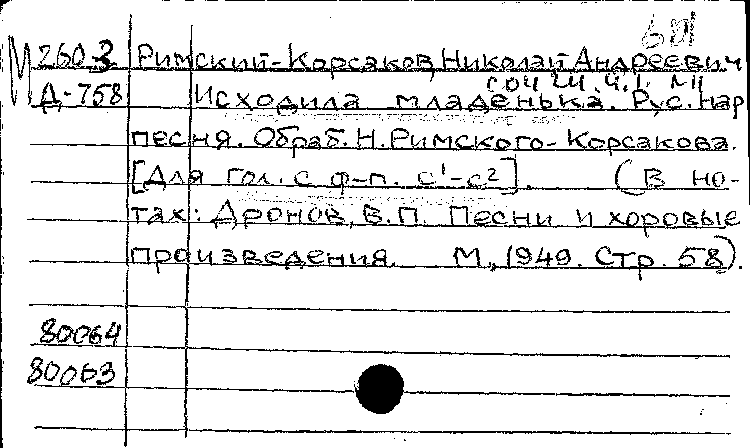 М 260-3 Римский-Корсаков, Николай Андреевич
соч 24. ч. 1.
Д-758 Исходила младенька. Рус. нар
песня. Обраб. Н. Римского-Корсакова.
[Для гол. с ф-п. c¹-c²]. (В но-
тах: Дронов, В.П. Песни и хоровые
произведения. М., 1949. Стр. 58).
80064
80063